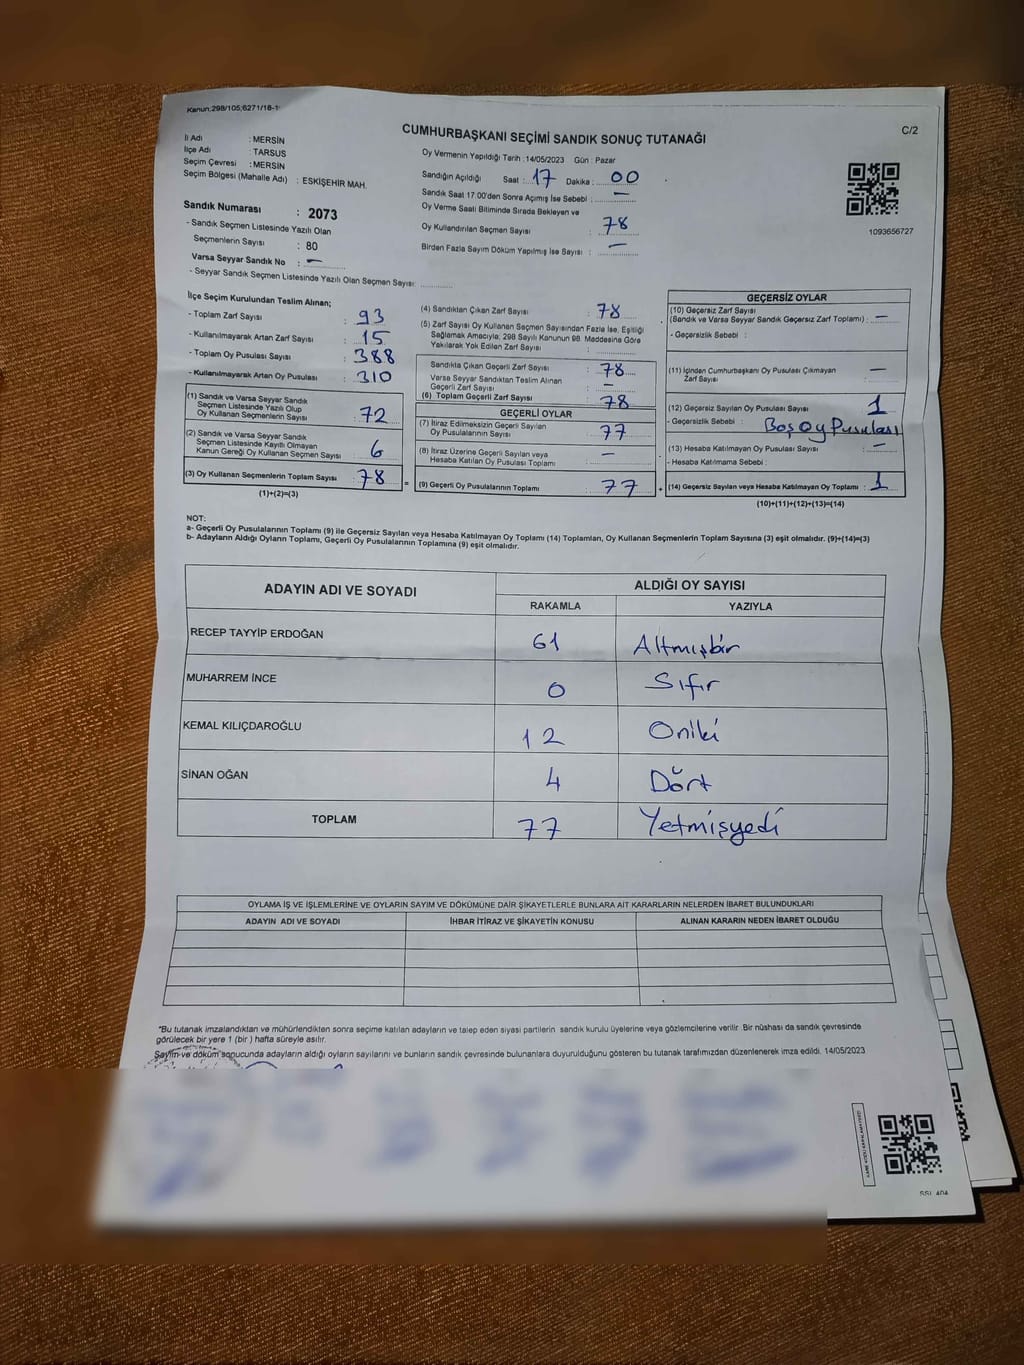 Kanun;298/105;6271/18-1
CUMHURBAŞKANI SEÇİMİ SANDIK SONUÇ TUTANAĞI
C/2
İl Adı : MERSİN
İlçe Adı : TARSUS
Seçim Çevresi : MERSİN
Seçim Bölgesi (Mahalle Adı) : ESKİŞEHİR MAH.
Oy Vermenin Yapıldığı Tarih : 14/05/2023 Gün : Pazar
Sandığın Açıldığı Saat : 17 Dakika : 00
Sandık Saat 17.00'den Sonra Açımış İse Sebebi : —
Oy Verme Saati Bitiminde Sırada Bekleyen ve
Oy Kullandırılan Seçmen Sayısı : 78
Birden Fazla Sayım Döküm Yapılmış İse Sayısı : —
1093656727
Sandık Numarası : 2073
- Sandık Seçmen Listesinde Yazılı Olan
Seçmenlerin Sayısı : 80
Varsa Seyyar Sandık No : —
- Seyyar Sandık Seçmen Listesinde Yazılı Olan Seçmen Sayısı:
İlçe Seçim Kurulundan Teslim Alınan;
- Toplam Zarf Sayısı : 93
- Kullanılmayarak Artan Zarf Sayısı : 15
- Toplam Oy Pusulası Sayısı : 388
- Kullanılmayarak Artan Oy Pusulası : 310
(1) Sandık ve Varsa Seyyar Sandık
Seçmen Listesinde Yazılı Olup
Oy Kullanan Seçmenlerin Sayısı : 72
(2) Sandık ve Varsa Seyyar Sandık
Seçmen Listesinde Kayıtlı Olmayan
Kanun Gereği Oy Kullanan Seçmen Sayısı : 6
(3) Oy Kullanan Seçmenlerin Toplam Sayısı : 78
(1)+(2)=(3)
(4) Sandıktan Çıkan Zarf Sayısı : 78
(5) Zarf Sayısı Oy Kullanan Seçmen Sayısından Fazla İse, Eşitliği
Sağlamak Amacıyla; 298 Sayılı Kanunun 98. Maddesine Göre
Yakılarak Yok Edilen Zarf Sayısı :
Sandıkta Çıkan Geçerli Zarf Sayısı : 78
Varsa Seyyar Sandıktan Teslim Alınan
Geçerli Zarf Sayısı : —
(6) Toplam Geçerli Zarf Sayısı : 78
GEÇERLİ OYLAR
(7) İtiraz Edilmeksizin Geçerli Sayılan
Oy Pusulalarının Sayısı : 77
(8) İtiraz Üzerine Geçerli Sayılan veya
Hesaba Katılan Oy Pusulası Toplamı : —
(9) Geçerli Oy Pusulalarının Toplamı : 77
GEÇERSİZ OYLAR
(10) Geçersiz Zarf Sayısı
(Sandık ve Varsa Seyyar Sandık Geçersiz Zarf Toplamı) : —
- Geçersizlik Sebebi :
(11) İçinden Cumhurbaşkanı Oy Pusulası Çıkmayan
Zarf Sayısı —
(12) Geçersiz Sayılan Oy Pusulası Sayısı : 1
- Geçersizlik Sebebi : Boş Oy Pusulası
(13) Hesaba Katılmayan Oy Pusulası Sayısı : —
- Hesaba Katılmama Sebebi :
(14) Geçersiz Sayılan veya Hesaba Katılmayan Oy Toplamı : 1
(10)+(11)+(12)+(13)=(14)
NOT:
a- Geçerli Oy Pusulalarının Toplamı (9) ile Geçersiz Sayılan veya Hesaba Katılmayan Oy Toplamı (14) Toplamları, Oy Kullanan Seçmenlerin Toplam Sayısına (3) eşit olmalıdır. (9)+(14)=(3)
b- Adayların Aldığı Oyların Toplamı, Geçerli Oy Pusulalarının Toplamına (9) eşit olmalıdır.
ADAYIN ADI VE SOYADI
ALDIĞI OY SAYISI
RAKAMLA YAZIYLA
RECEP TAYYİP ERDOĞAN 61 Altmışbir
MUHARREM İNCE 0 Sıfır
KEMAL KILIÇDAROĞLU 12 Oniki
SİNAN OĞAN 4 Dört
TOPLAM 77 Yetmişyedi
OYLAMA İŞ VE İŞLEMLERİNE VE OYLARIN SAYIM VE DÖKÜMÜNE DAİR ŞİKAYETLERLE BUNLARA AİT KARARLARIN NELERDEN İBARET BULUNDUKLARI
ADAYIN ADI VE SOYADI İHBAR İTİRAZ VE ŞİKAYETİN KONUSU ALINAN KARARIN NEDEN İBARET OLDUĞU
*Bu tutanak imzalandıktan ve mühürlendikten sonra seçime katılan adayların ve talep eden siyasi partilerin sandık kurulu üyelerine veya gözlemcilerine verilir. Bir nüshası da sandık çevresinde
görülecek bir yere 1 (bir ) hafta süreyle asılır.
Sayım ve döküm sonucunda adayların aldığı oyların sayılarını ve bunların sandık çevresinde bulunanlara duyurulduğunu gösteren bu tutanak tarafımızdan düzenlenerek imza edildi. 14/05/2023